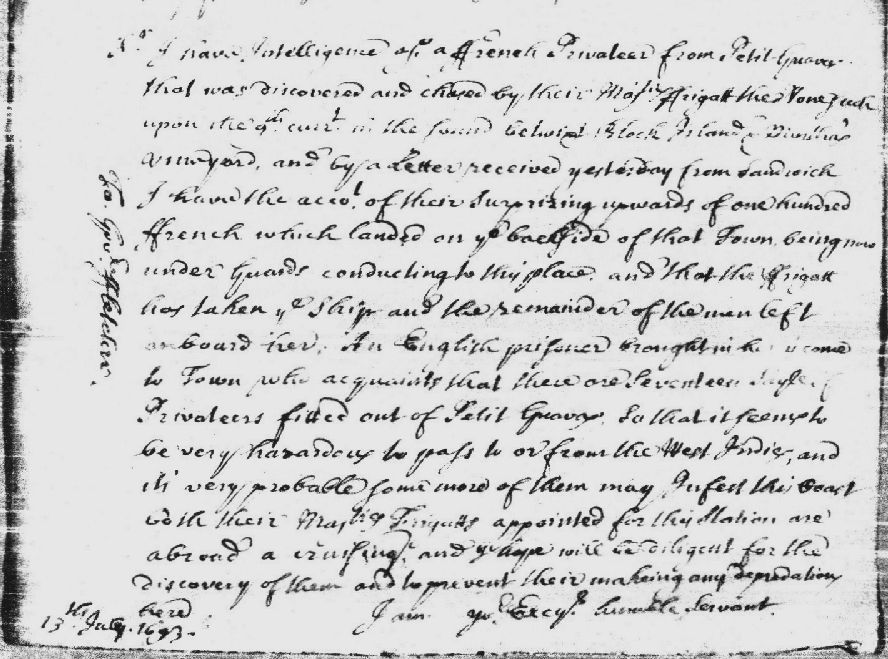 Sr. I have Intelligence of a ffrench Privateer from Petit Guavas
that was discovered and chased by their Majties ffrigatt the Nonesuch
upon the 9th. currt. in the sound betwixt Block Island & Marthas
Vineyard, and by a Letter received yesterday from Sandwich
I have the accot. of their Surprizing upwards of one hundred
ffrench which landed on ye backside of that Town being now
under Guards conducting to this place. and that the ffrigatt
has taken ye Ship and the remainder of the men left
onboard her. An English prisoner brought in her is come
to Town who acquaints that there are Seventeen Sayle of
Privateers fitted out of Petit Guavas. So that it seems to
be very hazardous to pass to or from the West Indies, and
its very probable some more of them may Infest this Coast
both their Majties Frigatts appointed for this Station are
abroad a cruising, and hope will be diligent for the
discovery of them and to prevent their making any depredations
here
I am yor Excys. humble Servant.
13th July. 1693.
To Govr ffletcher.